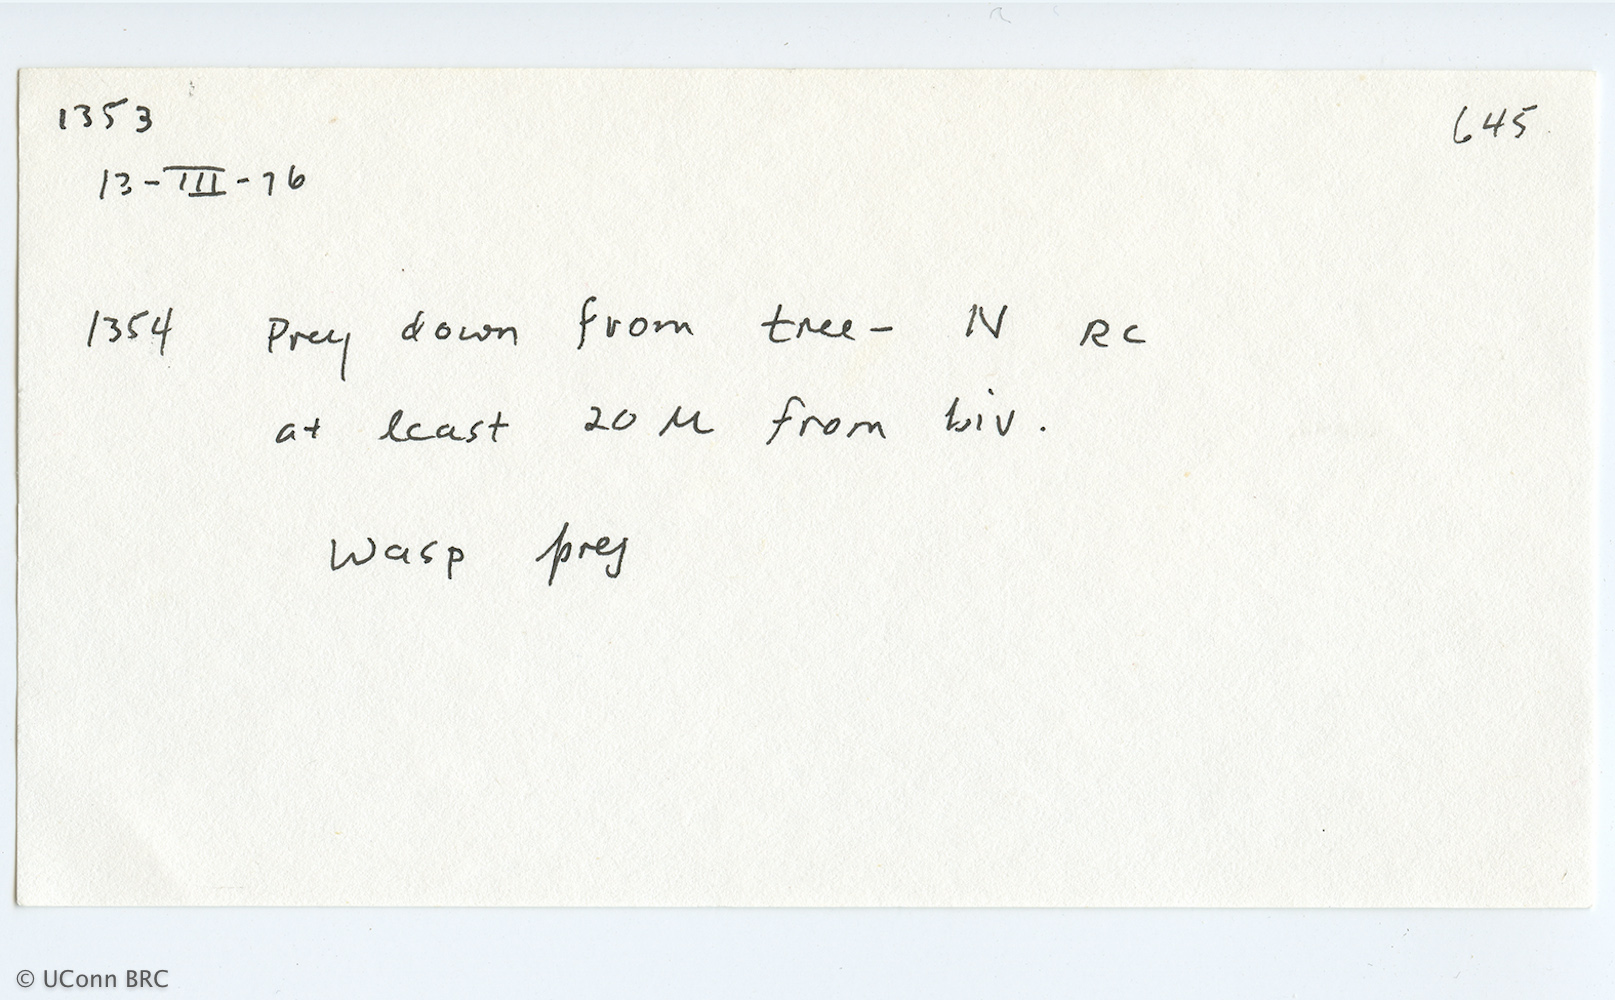 1353
645
13-III-76
1354 Prey down from tree- N RC
at least 20 M from biv.
Wasp prey
© UConn BRC